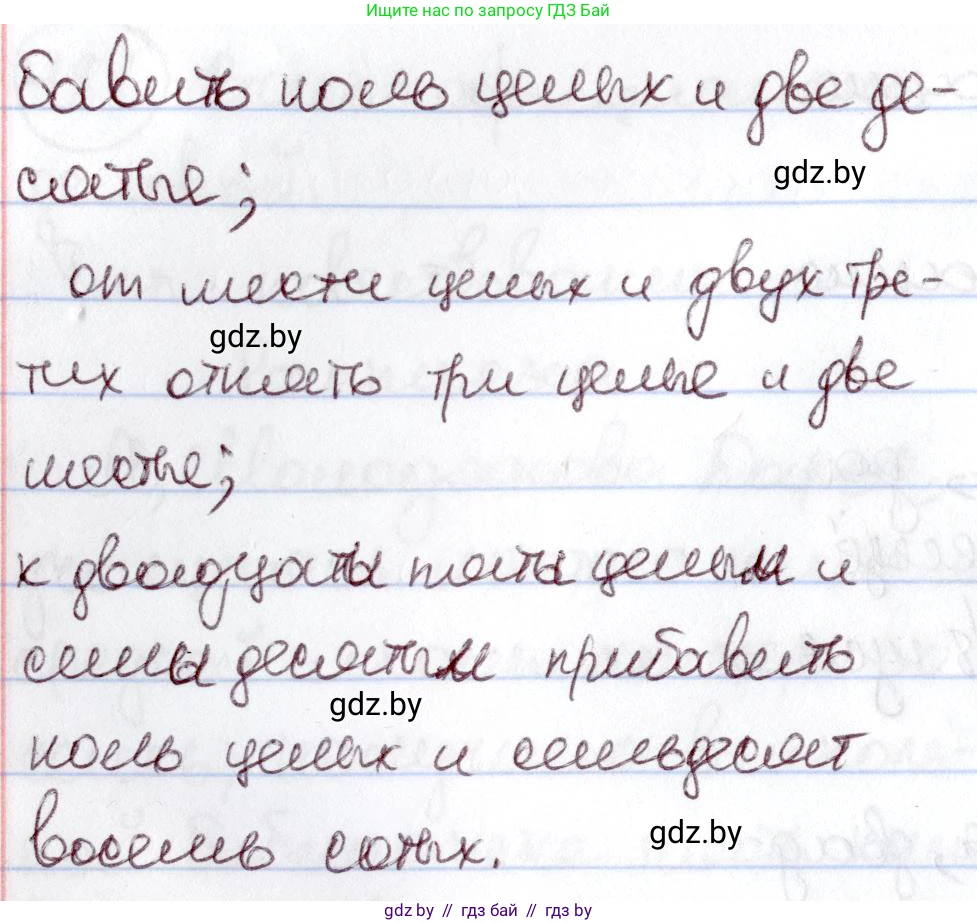 Ищите нас по запросу ГДЗ Бай
бавить ноль целых и две де-
сятые;
gdz.by
от шести целых и двух тре-
gdz.by
тих отнять три целые и две
шестые;
к двадцати пяти целым и
семи десятым прибавить
gdz.by
ноль целых и семьдесят
восемь сотых.
gdz.by
gdz.by // гдз бай // гдз by